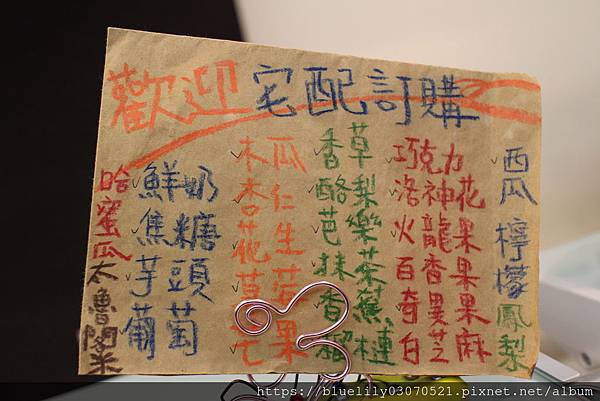 歡迎宅配訂購
哈蜜瓜
太魯閣米
鮮奶
焦糖
芋頭
葡萄
木瓜
杏仁
花生
草莓
芒果
香草
酪梨
芭樂
抹茶
香蕉
榴槤
巧克力
洛神花
火龍果
百香果
奇異果
白芝麻
西瓜
檸檬
鳳梨
https://bluelily03070521.pixnet.net/album